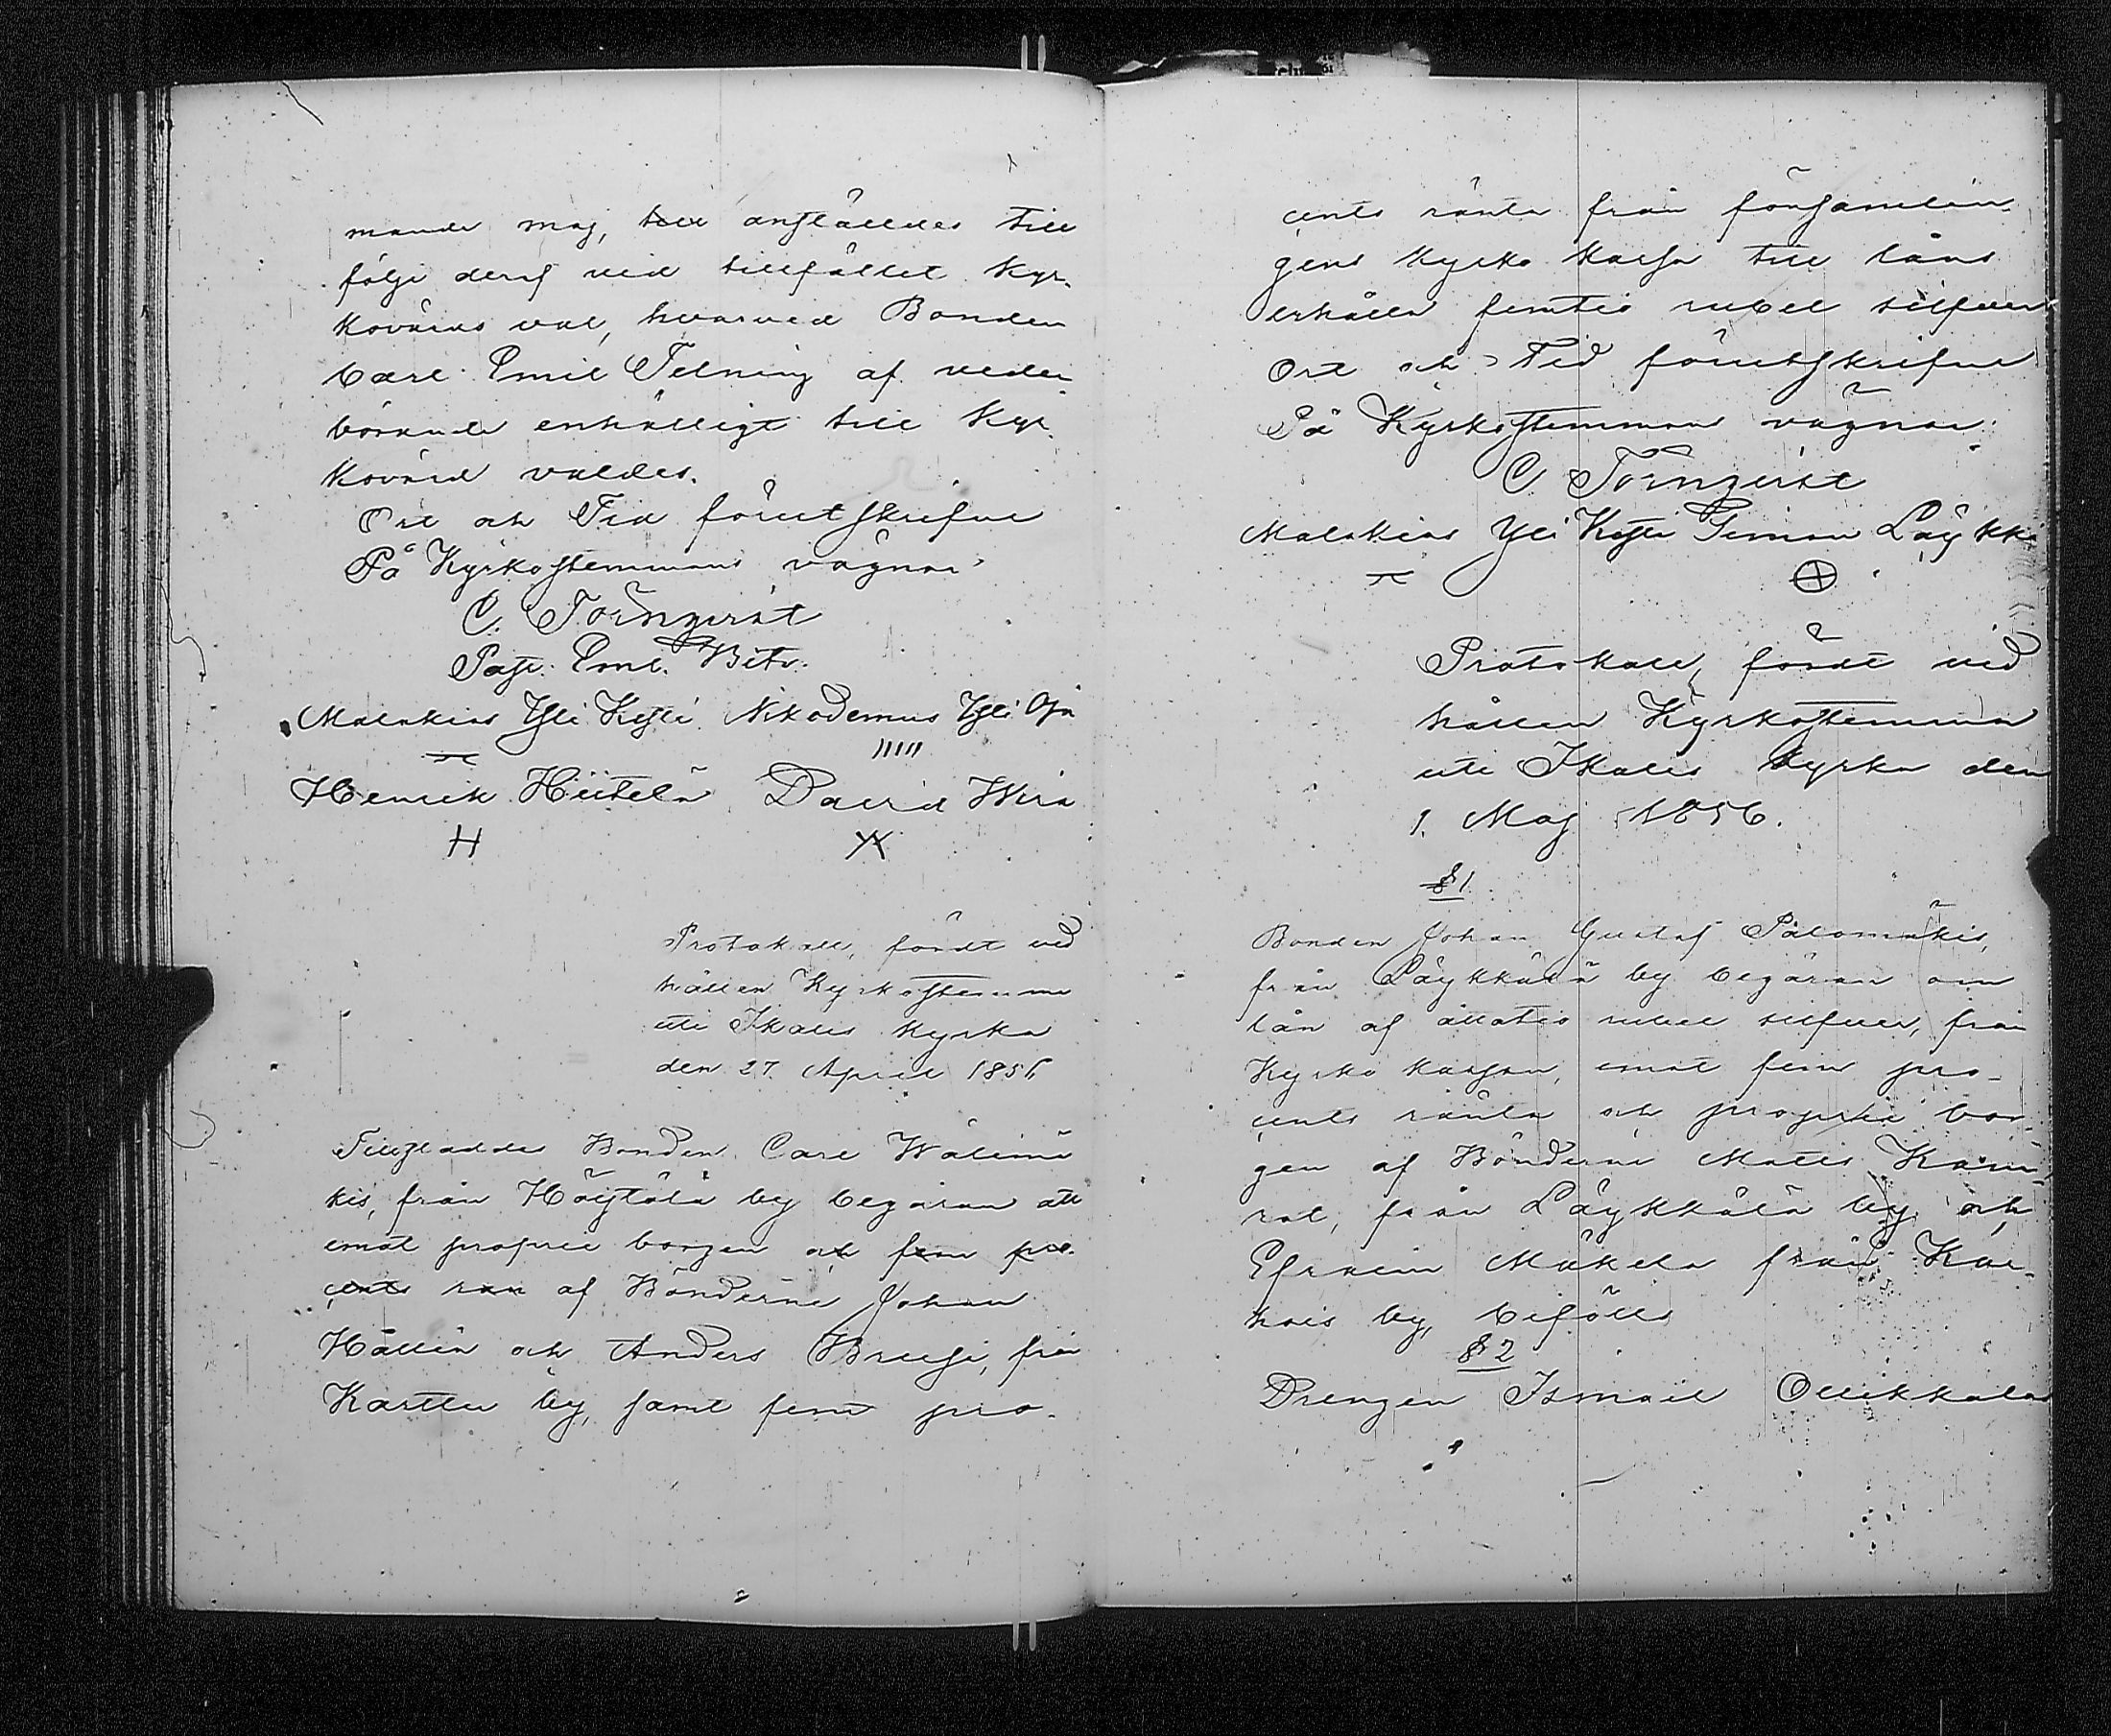 mande maj, till anställdes till
följe deraf vid tillfället Kyr-
kovärds val, hvarvid Bonden
Carl Emil Telning af veder-
börande enhälligt till Kyr-
kovärd valdes.
Ort och Tid förutskrifne
På Kyrkostemmans vägnar
C. Törnqvist
Past. Eml. Bitr.
Malakias Yli Kesti Nikodemus Yli Oja
Henrik Hiitelä David Wira
H
Protokoll, fördt vid
hållen Kyrkostemma
uti Ikalis Kyrka
den 27. April 1856
Tillstaddes Bonden Carl Wälimä
kis, från Höytölä by begäran att
emot proprie borgen och fem pro-
cents rän af Bönderne Johan
Hällin och Anders Bruse, från
Karttu by, samt fem pro-
cents ränta från församlin
gens Kyrko Kassa till låns
erhålla femtio rubel silfver
Ort och Tid förutskrifne
På Kyrkostemmans vägnar:
C Törnqvist
Malakias Yli Kesti Simon Läykki
Protokoll, fördt vid
hållen Kyrkostemma
uti Ikalis Kyrka den
1. Maj 1856.
§ 1
Bonden Johan Gustaf Palomäkis,
från Läykkälä by begäran om
lån af åttatio rubel silfver, från
Kyrko kassan, emot fem pro-
cents ränta och proprie bor-
gen af Bönderne Matts
från Läykkälä by och
Efraim Mäkelä från Kar-
hois by, bifölls
§ 2
Drengen Ismael Ollikkalas